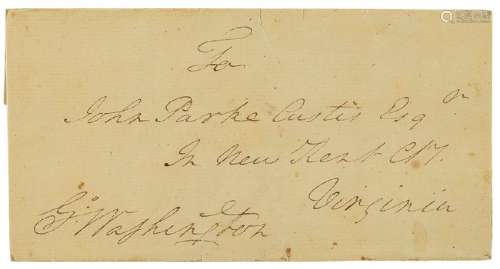 To
John Parke Custis Esqr.
In New Kent Cty.
Virginia
Go: Washington